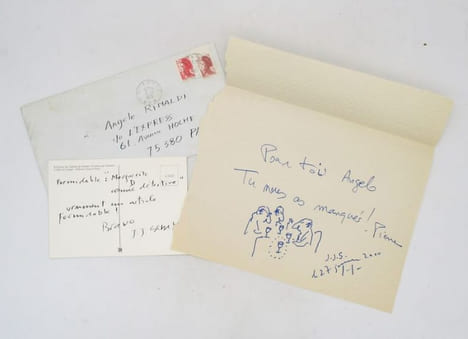 Angelo RINALDI
c/o L'EXPRESS
61 Avenue HOCHE
75.380 PA
Formidable : "Marguerite
D comme détective"
vraiment un article
formidable !
Bravo
J.J.
Pour toi Angelo
Tu nous as manqué !
Pierre
J.J.S.